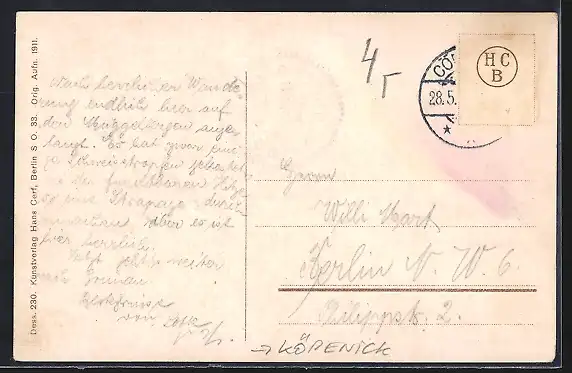 Dess. 230. Kunstverlag Hans Cerf, Berlin S O. 33. Orig. Aufn. 1911.
Nach herrlicher Wande-
rung endlich hier auf
den Müggelbergen ange-
langt. Es hat zwar eini-
ge Schweisstropfen gekostet
bei der Hitze
so eine Strapaze durch
Aber es ist
hier herrlich.
Jetzt geht's weiter
nach Grünau.
von
4
CÖP
28.5.
H C
B
Herrn
Willi Hart
Berlin N. W. 6.
Philippstr. 2.
→ KÖPENICK